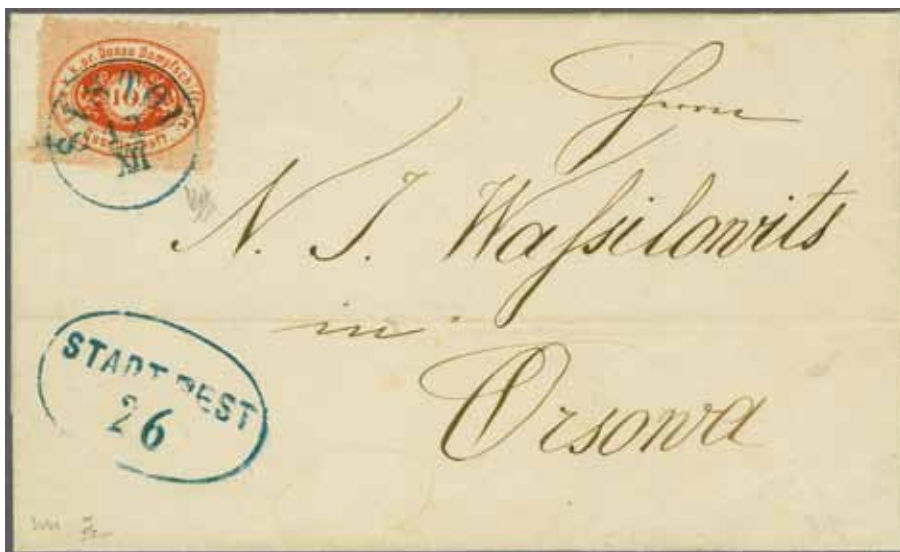 k.k.pr. Donau Dampfschiff
10
Gesellschaft.
Herrn
N. J. Waſsilowits
in
Orsowa
STADT PEST
26